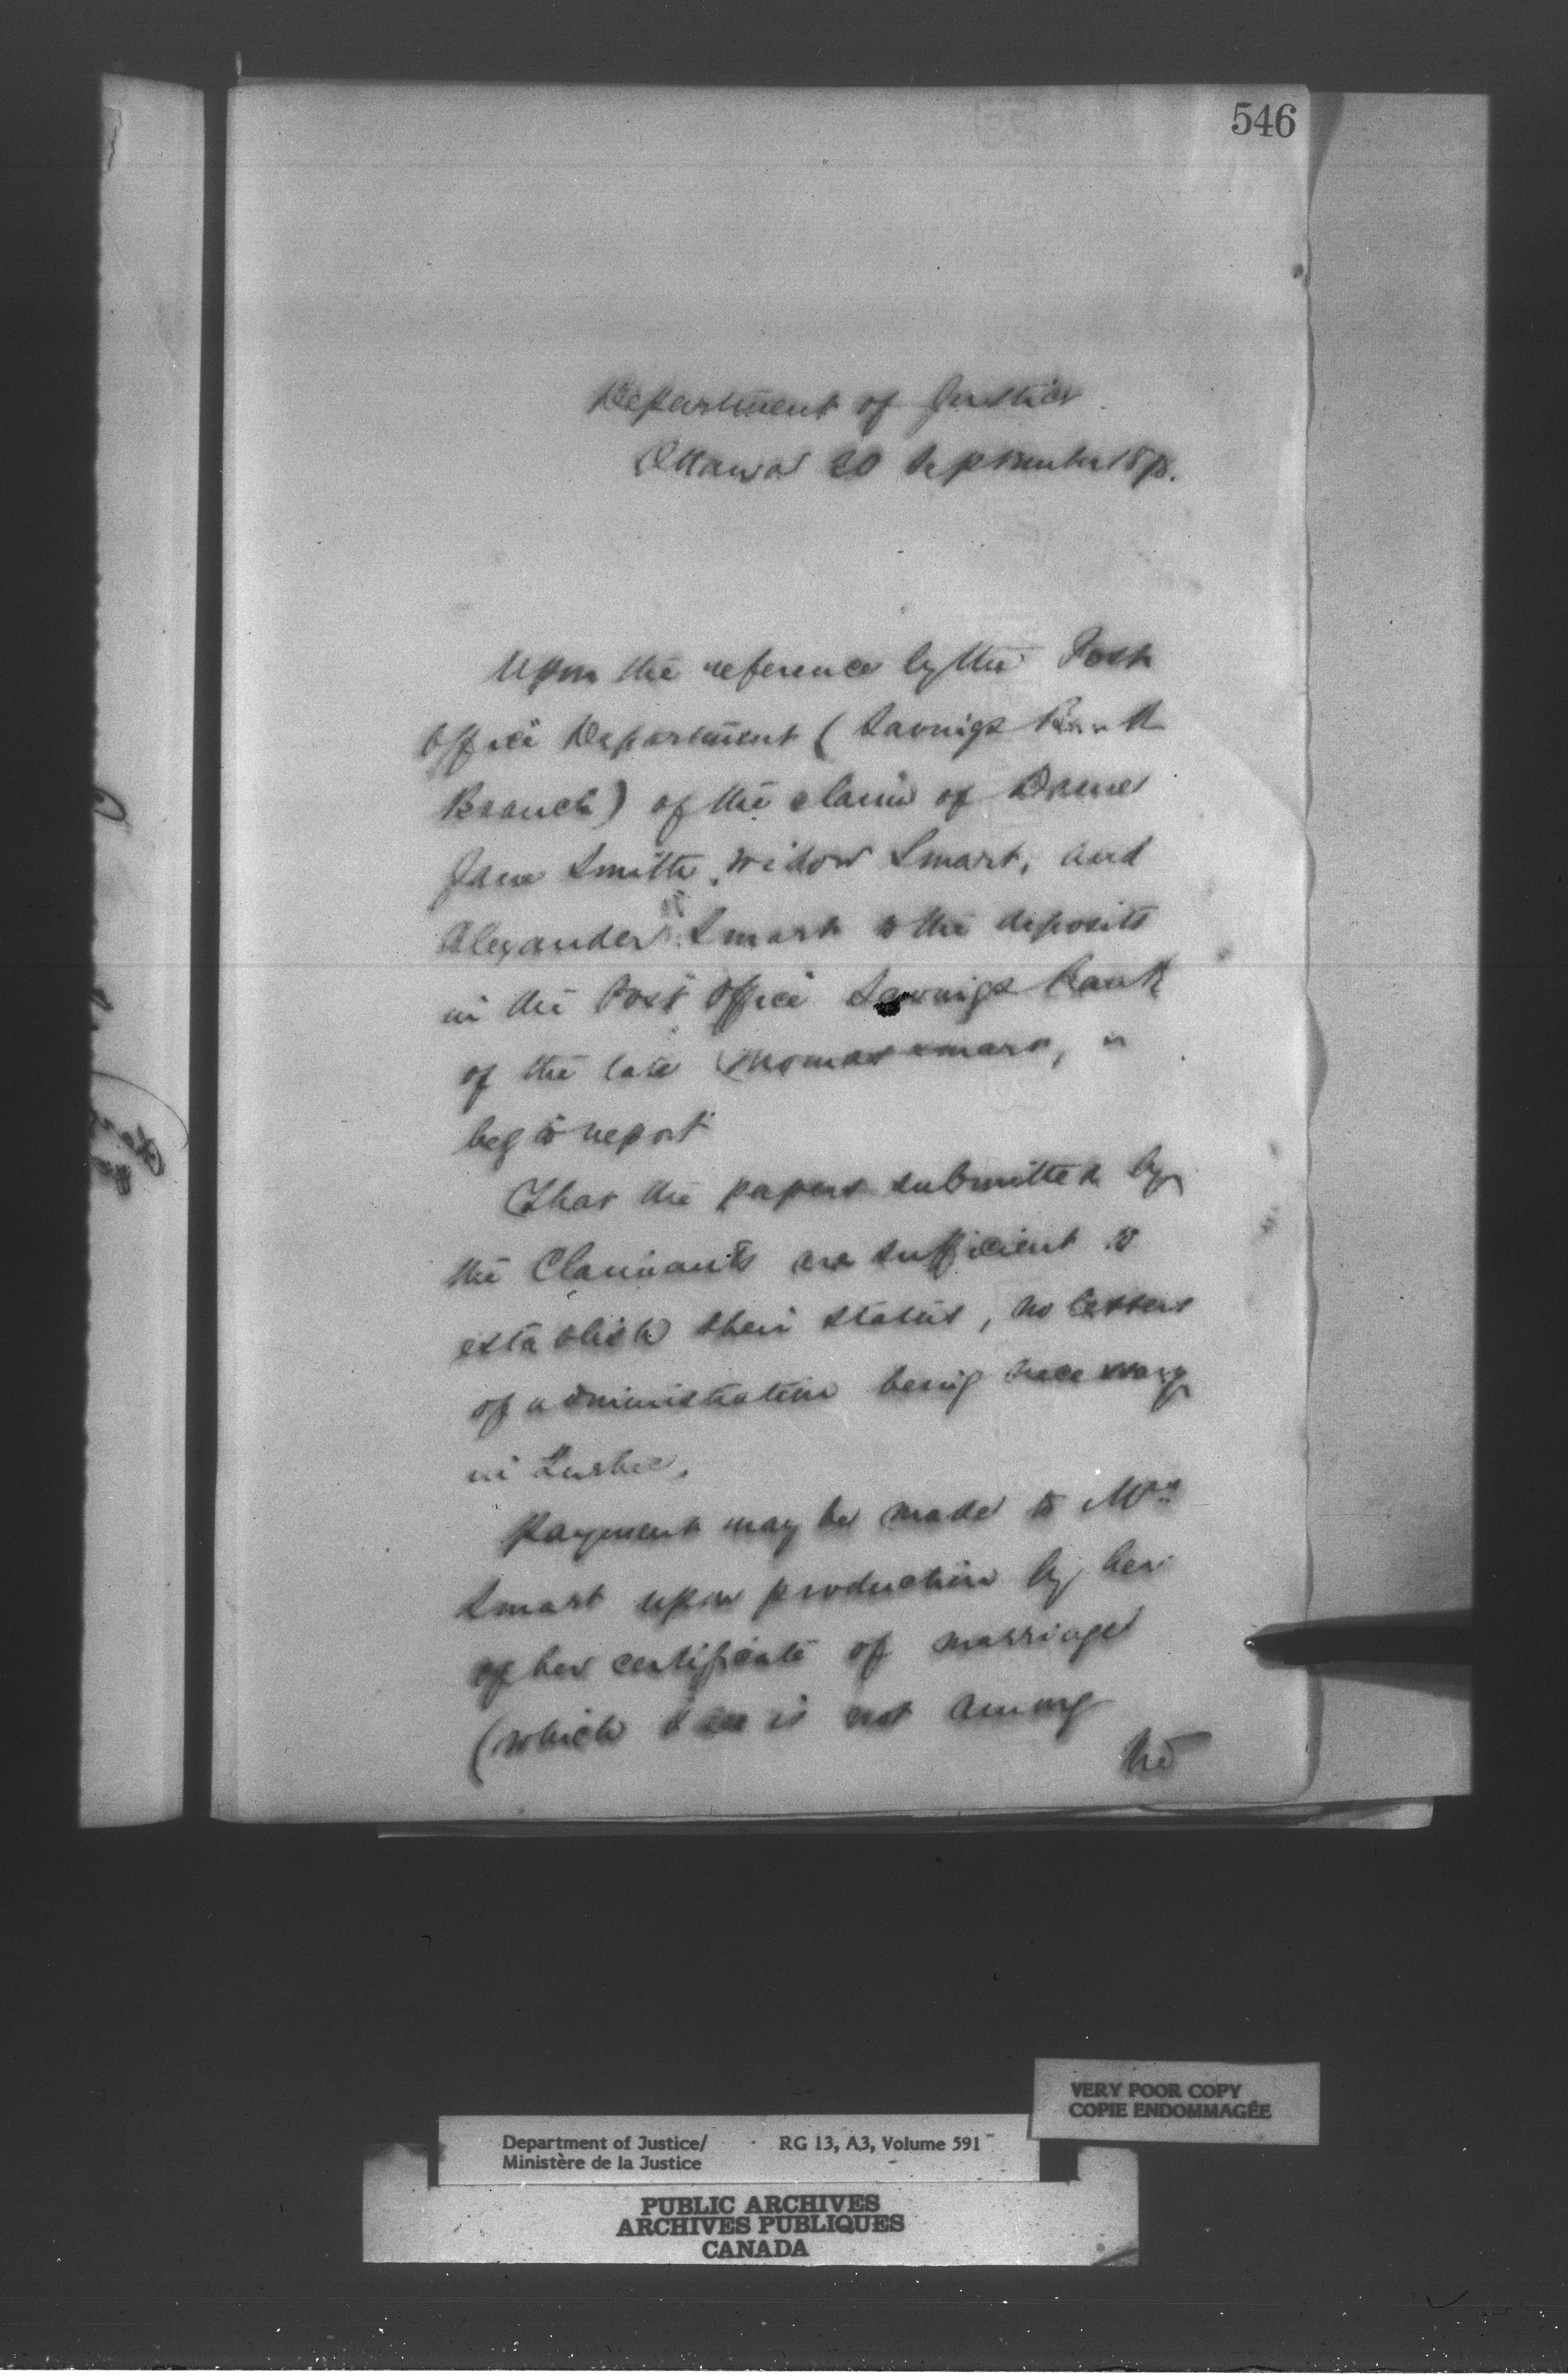 546
Department of Justice
Ottawa 20 September 187
Upon the reference by the Post
Office Department (Savings Bank
Branch) of the claim of Dame
Jane Smith, widow Smart, and
Alexander Smart to the deposits
in the Post Office Savings Bank
of the late Thomas Smart,
beg to report
That the papers submitted by
the Claimants are sufficient to
establish their status, no letters
of administration being necessary
in Quebec.
Payment may be made to Mrs
Smart upon production by her
of her certificate of marriage
(which I see is not among
the
VERY POOR COPY
COPIE ENDOMMAGÉE
Department of Justice/ RG 13, A3, Volume 591
Ministère de la Justice
PUBLIC ARCHIVES
ARCHIVES PUBLIQUES
CANADA